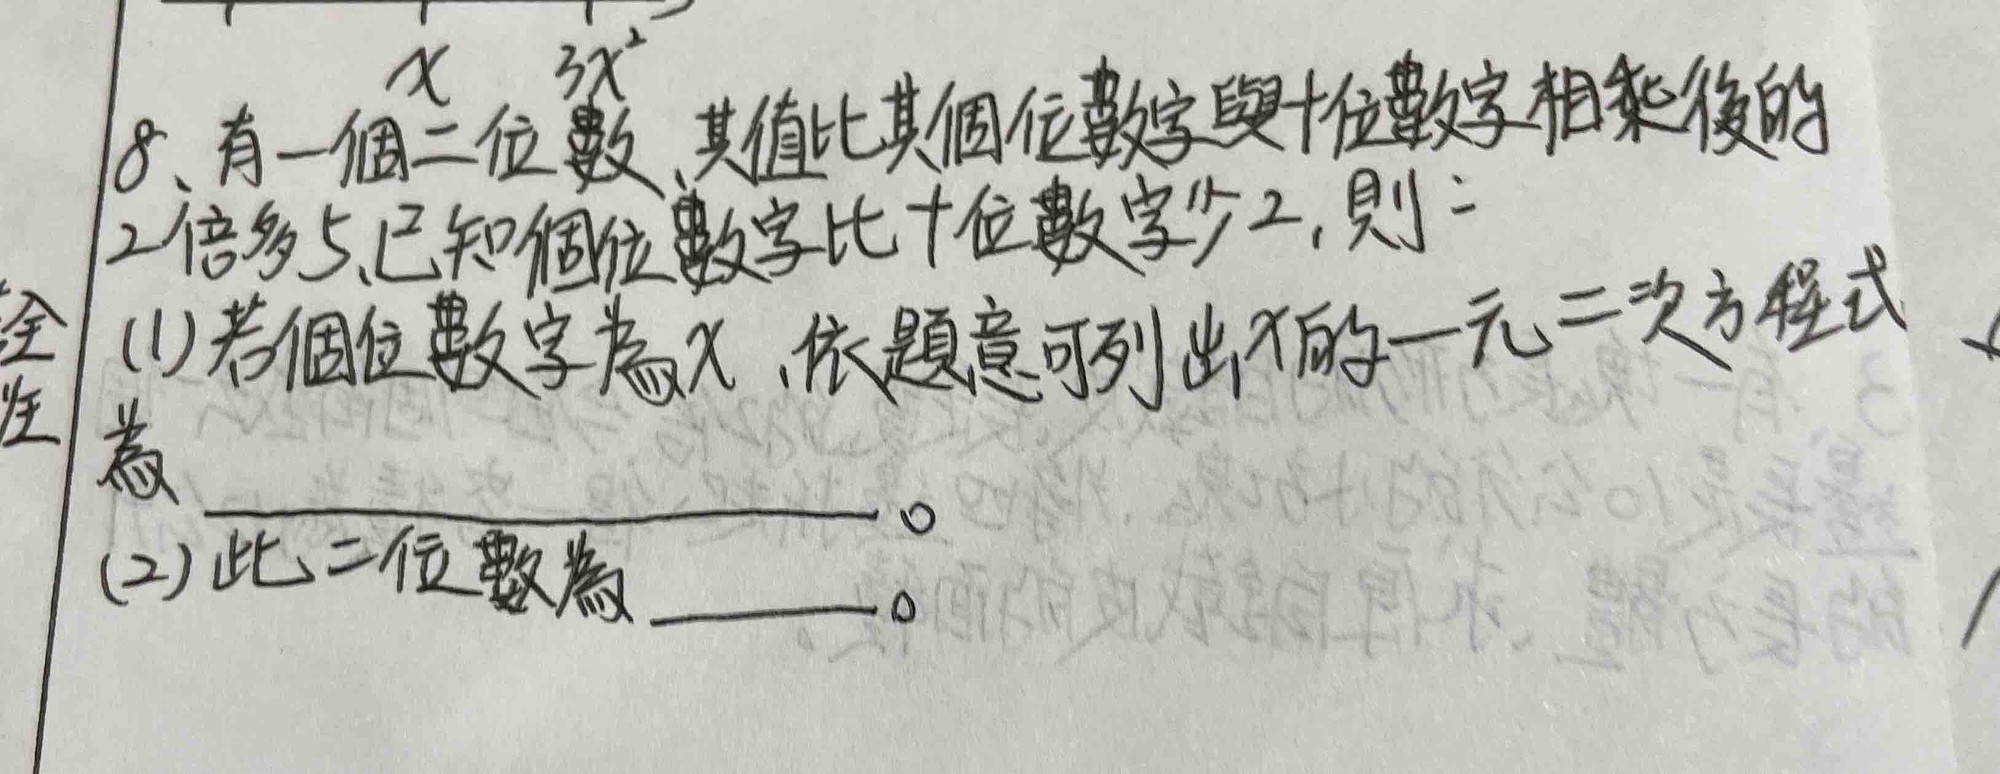 x 3x²
8、有一個二位數、其值比其個位數字與十位數字相乘後的
2倍多5、已知個位數字比十位數字少2，則：
(1)若個位數字為x，依題意可列出x的一元二次方程式
為＿＿＿＿＿＿＿＿。
(2)此二位數為＿＿＿。